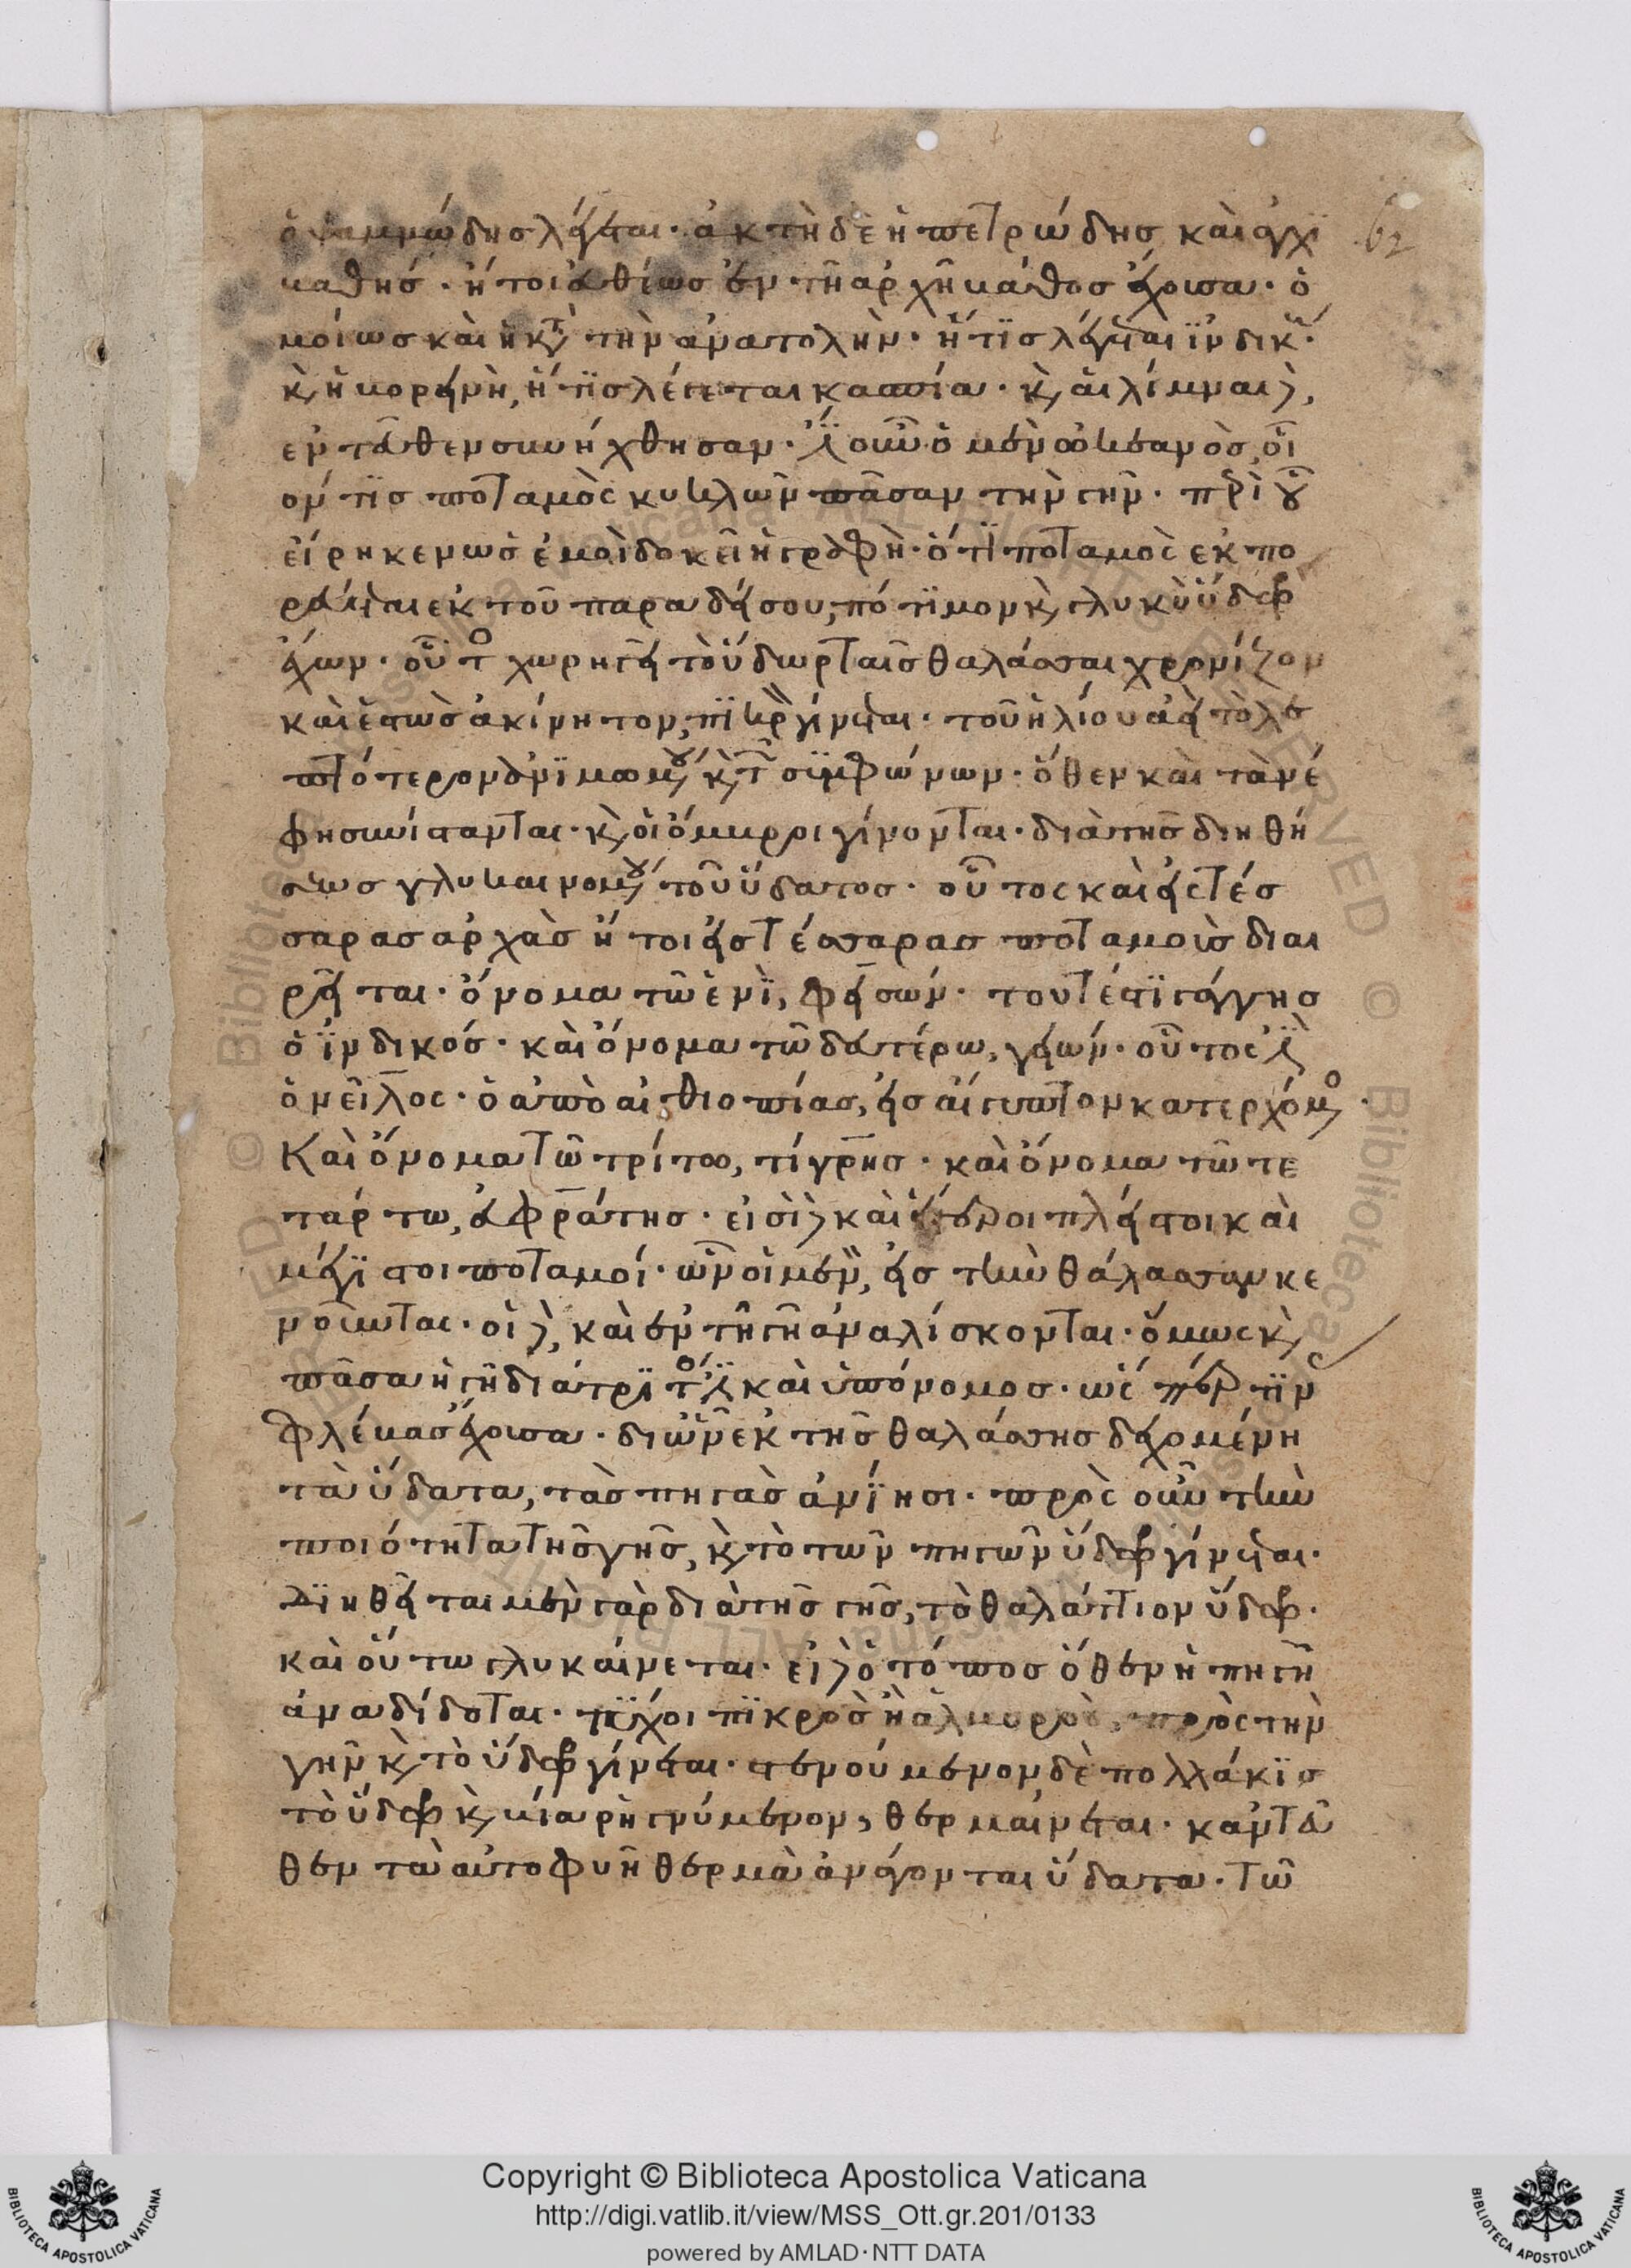 ὁ ψαμμώδης λέγεται· ἀκτὴ δὲ ἡ πετρώδης καὶ ἀγχι
βαθής· ἤτοι εὐθέως ἐν τῆ ἀρχῆ βάθος ἔχουσα· ὁ
μοίως καὶ ἡ κτ τὴν ἀνατολὴν· ἥτις λέγεται ἰνδικ
κ ἡ βορεινὴ, ἥτις λέγεται κασπία· κ αἱ λίμναι δ,
ἐντεῦθεν συνήχθησαν· ἔ οὖν ὁ μὲν ὠκεανὸς, οἷ
όν τις ποταμὸς κυκλῶν πᾶσαν τὴν γῆν· περὶ οὗ
εἴρηκεν ὡς ἐμοὶ δοκεῖ ἡ γραφὴ· ὅτι ποταμὸς ἐκπο
ρεύεται ἐκ τοῦ παραδείσου, πότιμον κ γλυκὺ ὕδωρ
ἔχων· οὗτο χωρηγεῖ τὸ ὕδωρ ταῖς θαλάσσαις χρονίζον
καὶ ἑστὼς ἀκίνητον, πικρὸν γίνεται· τοῦ ἡλίου ἀεὶ τὸ λε
πτότερον ἀνιμωμου κ τ σιφώνων· ὅθεν καὶ τὰ νέ
φη συνίστανται· κ οἱ ὄμβροι γίνονται· διὰ τῆς διηθή
σεως γλυκαινομου τοῦ ὕδατος· οὗτος καὶ εἰς τέσ
σαρας ἀρχὰς ἤτοι εἰς τέσσαρας ποταμοὺς διαι
ρεῖται· ὄνομα τῶ ἑνὶ, φεισών· τουτέστι γάγγης
ὁ ἰνδικός· καὶ ὄνομα τῶ δευτέρω, γεών· οὗτος ἐ
ὁ νεῖλος· ὁ ἀπὸ αἰθιοπίας, εἰς αἴγυπτον κατερχόμο·
Καὶ ὄνομα τῶ τρίτω, τίγρης· καὶ ὄνομα τῶ τε
τάρτω, εὐφράτης· εἰσὶ δ καὶ ἕτεροι πλεῖστοι καὶ
μέγιστοι ποταμοί· ὧν οἱ μὲν, εἰς τὴν θάλασσαν κε
νοῦνται· οἱ δ, καὶ ἐν τῆ γῆ ἀναλίσκονται· ὅμως κ
πᾶσα ἡ γῆ διάτριτο ἐ καὶ ὑπόνομος· ὡσπερ τιν
φλέβας ἔχουσα· δι ὧν ἐκ τῆς θαλάσσης δεχομένη
τὰ ὕδατα, τὰς πηγὰς ἀνίησι· πρὸς οὖν τὴν
ποιότητα τῆς γῆς, κ τὸ τῶν πηγῶν ὕδωρ γίνεται·
Διηθεῖται μὲν γὰρ διὰ τῆς γῆς, τὸ θαλάττιον ὕδωρ·
καὶ οὕτω γλυκαίνεται· εἰ δ ὁ τόπος ὅθεν ἡ πηγὴ
ἀναδίδοται· τύχοι πικρὸς ἢ ἁλμυρὸς, πρὸς τὴν
γῆν κ τὸ ὕδωρ γίνεται· στενούμενον δὲ πολλάκις
τὸ ὕδωρ κ βία ρηγνύμενον, θερμαίνεται· κἀντεῦ
θεν τὰ αὐτοφυῆ θερμὰ ἀνέρχονται ὕδατα· τῶ
62
Copyright © Biblioteca Apostolica Vaticana
http://digi.vatlib.it/view/MSS_Ott.gr.201/0133
powered by AMLAD·NTT DATA